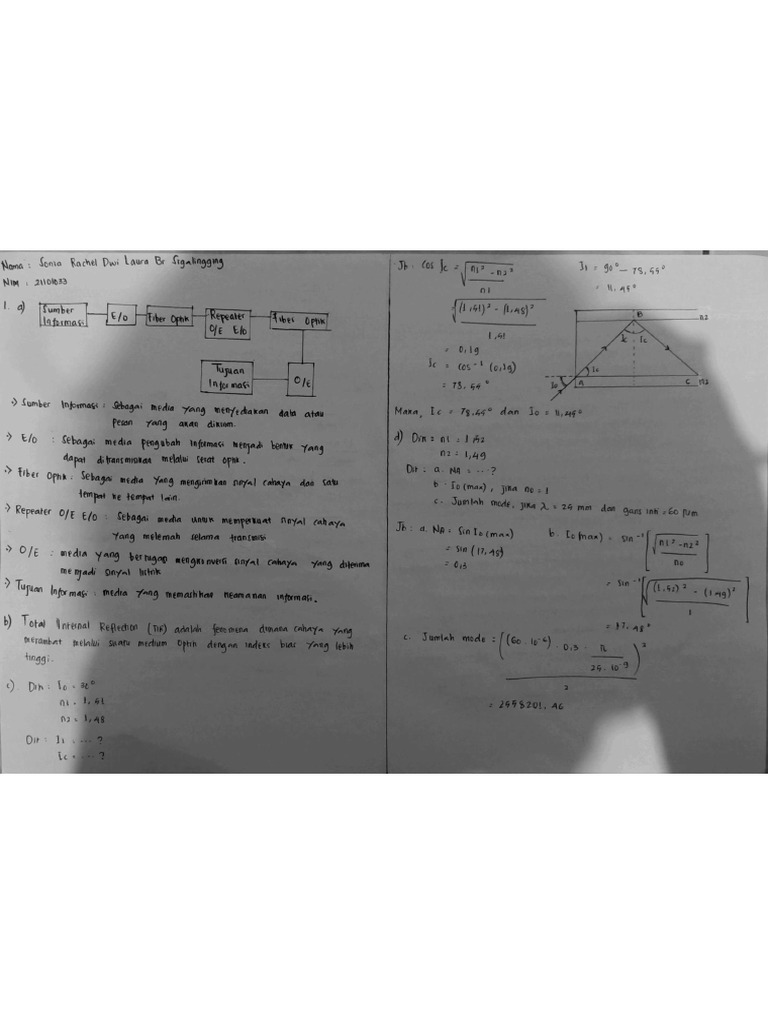 Nama : Sonia Rachel Dwi Laura Br Sigalingging
NIM : 21101033
1. a)
Sumber Informasi
E/O
Fiber Optik
Repeater O/E E/O
Fiber Optik
Tujuan Informasi
O/E
-> Sumber Informasi : Sebagai media yang menyediakan data atau
pesan yang akan dikirim.
-> E/O : Sebagai media pengubah informasi menjadi bentuk yang
dapat ditransmisikan melalui serat optik.
-> Fiber Optik : Sebagai media yang mengirimkan sinyal cahaya dari satu
tempat ke tempat lain.
-> Repeater O/E E/O : Sebagai media untuk memperkuat sinyal cahaya
yang melemah selama transmisi.
-> O/E : media yang bertugas mengkonversi sinyal cahaya yang diterima
menjadi sinyal listrik
-> Tujuan Informasi : media yang memastikan keamanan informasi.
b) Total Internal Reflection (TIR) adalah fenomena dimana cahaya yang
merambat melalui suatu medium optik dengan indeks bias yang lebih
tinggi.
c). Dik : Io =
n1 = 1,51
n2 = 1,48
Dit : I1 = ... ?
Ic = ... ?
Jb : cos Ic = √(n1² - n2²)
n1
√(1,51)² - (1,48)²
1,51
= 0,19
Ic = cos⁻¹ (0,19)
= 78,
I1 = 90° - 78,
= 11,
B
n2
Ic
Ic
Io
A
Ic
C
Maka, Ic = 78, dan Io = 11,
d) Dik = n1 = 1,52
n2 = 1,49
Dit : a. NA = ... ?
b. Io (max), jika no = 1
c. Jumlah mode, jika λ = 25 mm dan garis inti = 60 μm
Jb : a. NA = Sin Io (max)
= sin (17,45)
= 0,3
b. Io (max) = sin⁻¹ [√(n1² - n2²)
no]
= sin⁻¹ [√(1,52)² - (1,49)²
1]
= 17,45°
c. Jumlah mode = [(60 . 10⁻⁶) . 0,3 . π
25 . 10⁻⁹]²
2
= 2558201,46